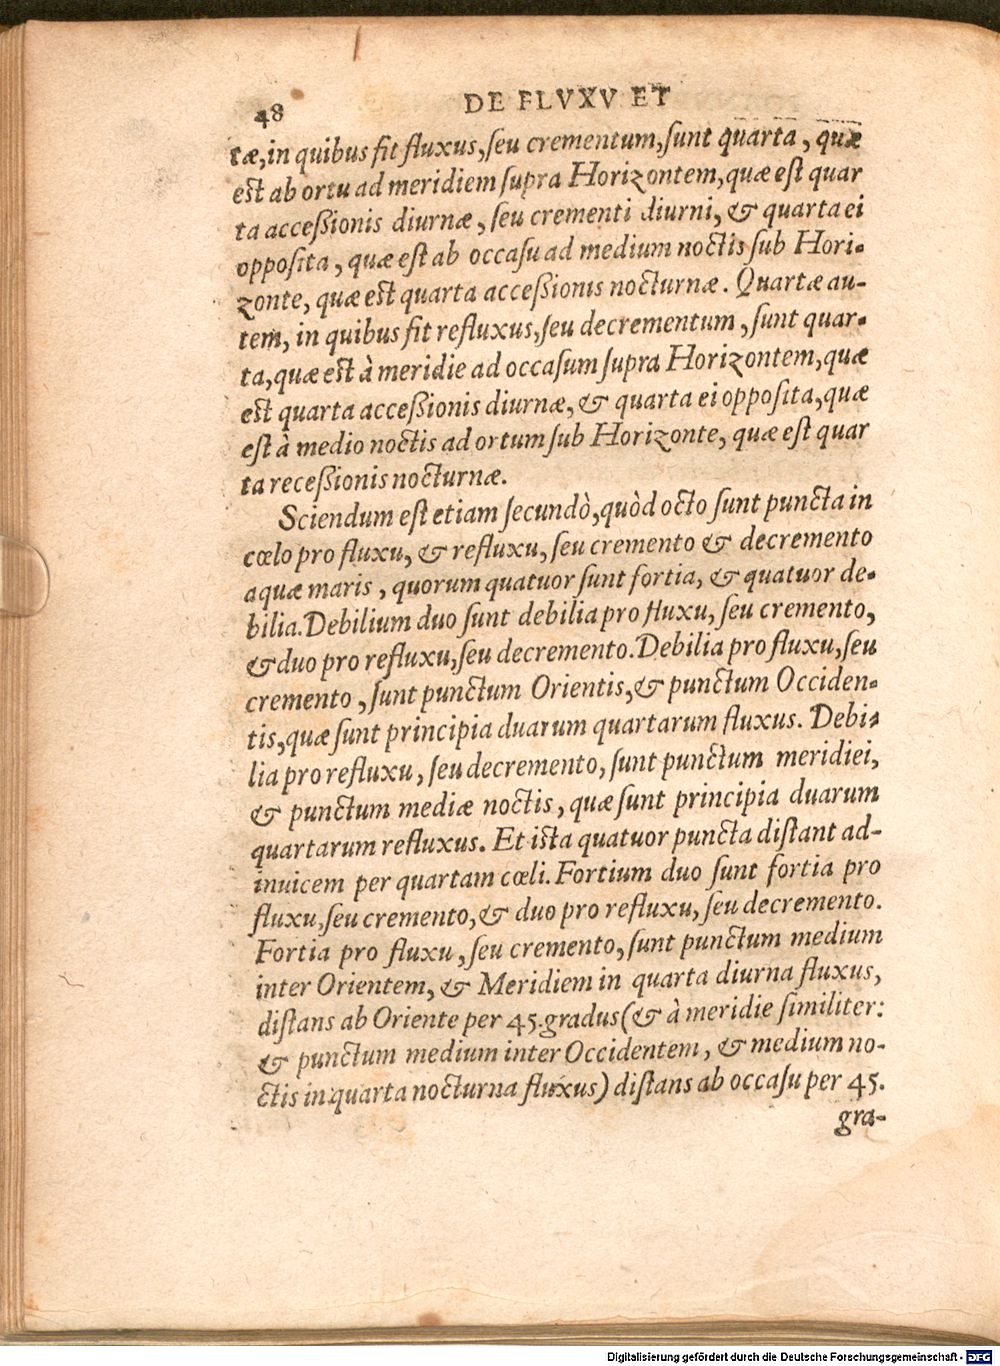 48
DE FLVXV ET
tæ,in quibus fit fluxus,ſeu crementum,ſunt quarta, quæ
est ab ortu ad meridiem ſupra Horizontem,quæ eſt quar
ta acceßionis diurnæ, ſeu crementi diurni, & quarta ei
oppoſita, quæ eſt ab occaſu ad medium noctis ſub Hori-
zonte, quæ est quarta acceßionis nocturnæ. Quartæ au-
tem, in quibus fit refluxus,ſeu decrementum, ſunt quar-
ta,quæ est à meridie ad occaſum ſupra Horizontem,quæ
est quarta acceßionis diurnæ, & quarta ei oppoſita,quæ
eſt à medio noctis ad ortum ſub Horizonte, quæ eſt quar
ta receßionis nocturnæ.
Sciendum eſt etiam ſecundò,quòd octo ſunt puncta in
cœlo pro fluxu, & refluxu, ſeu cremento & decremento
aquæ maris, quorum quatuor ſunt fortia, & quatuor de-
bilia. Debilium duo ſunt debilia pro fluxu, ſeu cremento,
& duo pro refluxu,ſeu decremento. Debilia pro fluxu,ſeu
cremento, ſunt punctum Orientis,& punctum Occiden-
tis,quæ ſunt principia duarum quartarum fluxus. Debi-
lia pro refluxu, ſeu decremento, ſunt punctum meridiei,
& punctum mediæ noctis, quæ ſunt principia duarum
quartarum refluxus. Et ista quatuor puncta diſtant ad-
inuicem per quartam cœli. Fortium duo ſunt fortia pro
fluxu,ſeu cremento,& duo pro refluxu, ſeu decremento.
Fortia pro fluxu, ſeu cremento, ſunt punctum medium
inter Orientem, & Meridiem in quarta diurna fluxus,
diſtans ab Oriente per 45.gradus(& à meridie ſimiliter:
& punctum medium inter Occidentem, & medium no-
ctis in quarta nocturna fluxus) diſtans ab occaſu per 45.
gra-
Digitalisierung gefördert durch die Deutsche Forschungsgemeinschaft - DFG